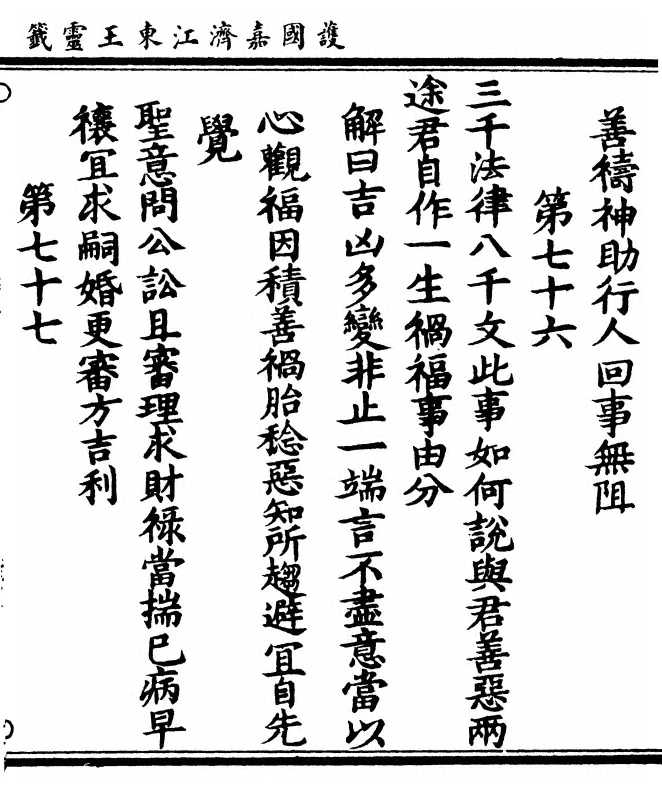 護國嘉濟江東王靈籤
善禱神助行人回事無阻
第七十六
三千法律八千文此事如何說與君善惡兩
途君自作一生禍福事由分
解曰吉凶多變非止一端言不盡意當以
心觀福因積善禍胎稔惡知所趨避宜自先
覺
聖意問公訟且審理求財祿當揣己病早
禳宜求嗣婚更審方吉利
第七十七